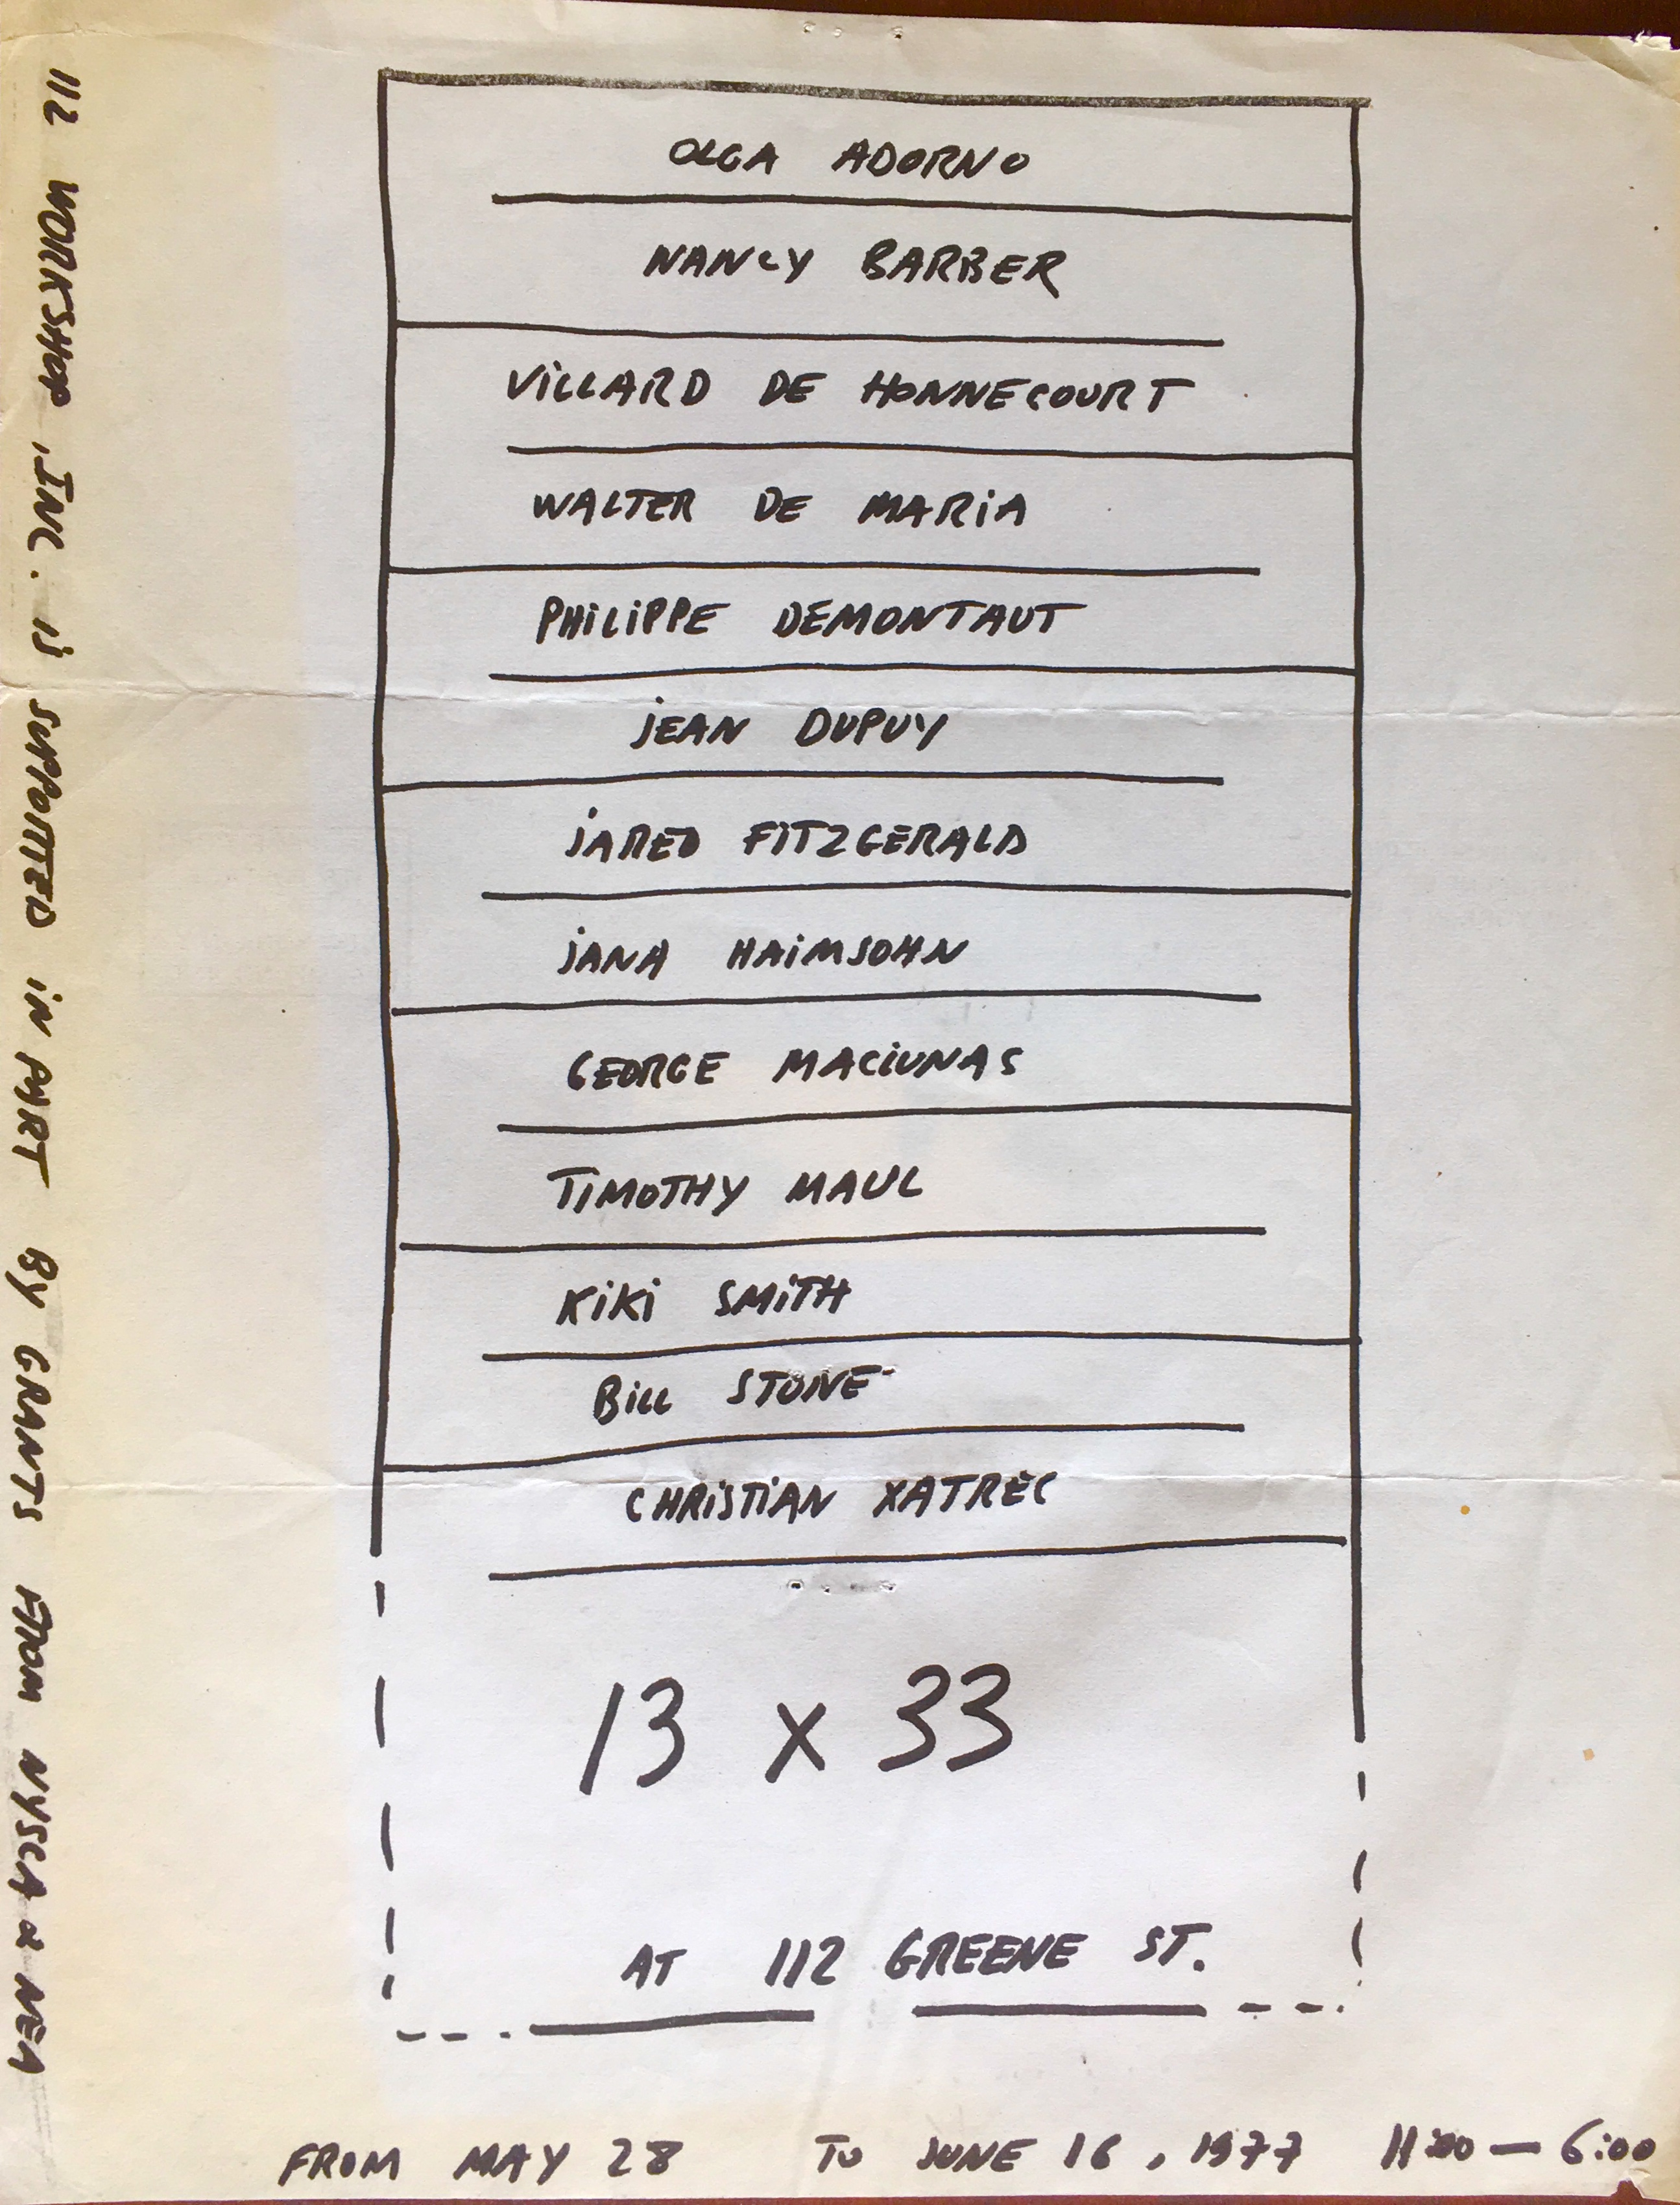 OLGA ADORNO
NANCY BARBER
VILLARD DE HONNECOURT
WALTER DE MARIA
PHILIPPE DEMONTAUT
JEAN DUPUY
JARED FITZGERALD
JANA HAIMSOHN
GEORGE MACIUNAS
TIMOTHY MAUL
KIKI SMITH
BILL STONE
CHRISTIAN XATREC
13 x 33
AT 112 GREENE ST.
FROM MAY 28 TO JUNE 16, 1977 11:00 — 6:00
112 WORKSHOP, INC. IS SUPPORTED IN PART BY GRANTS FROM NYSCA & NEA